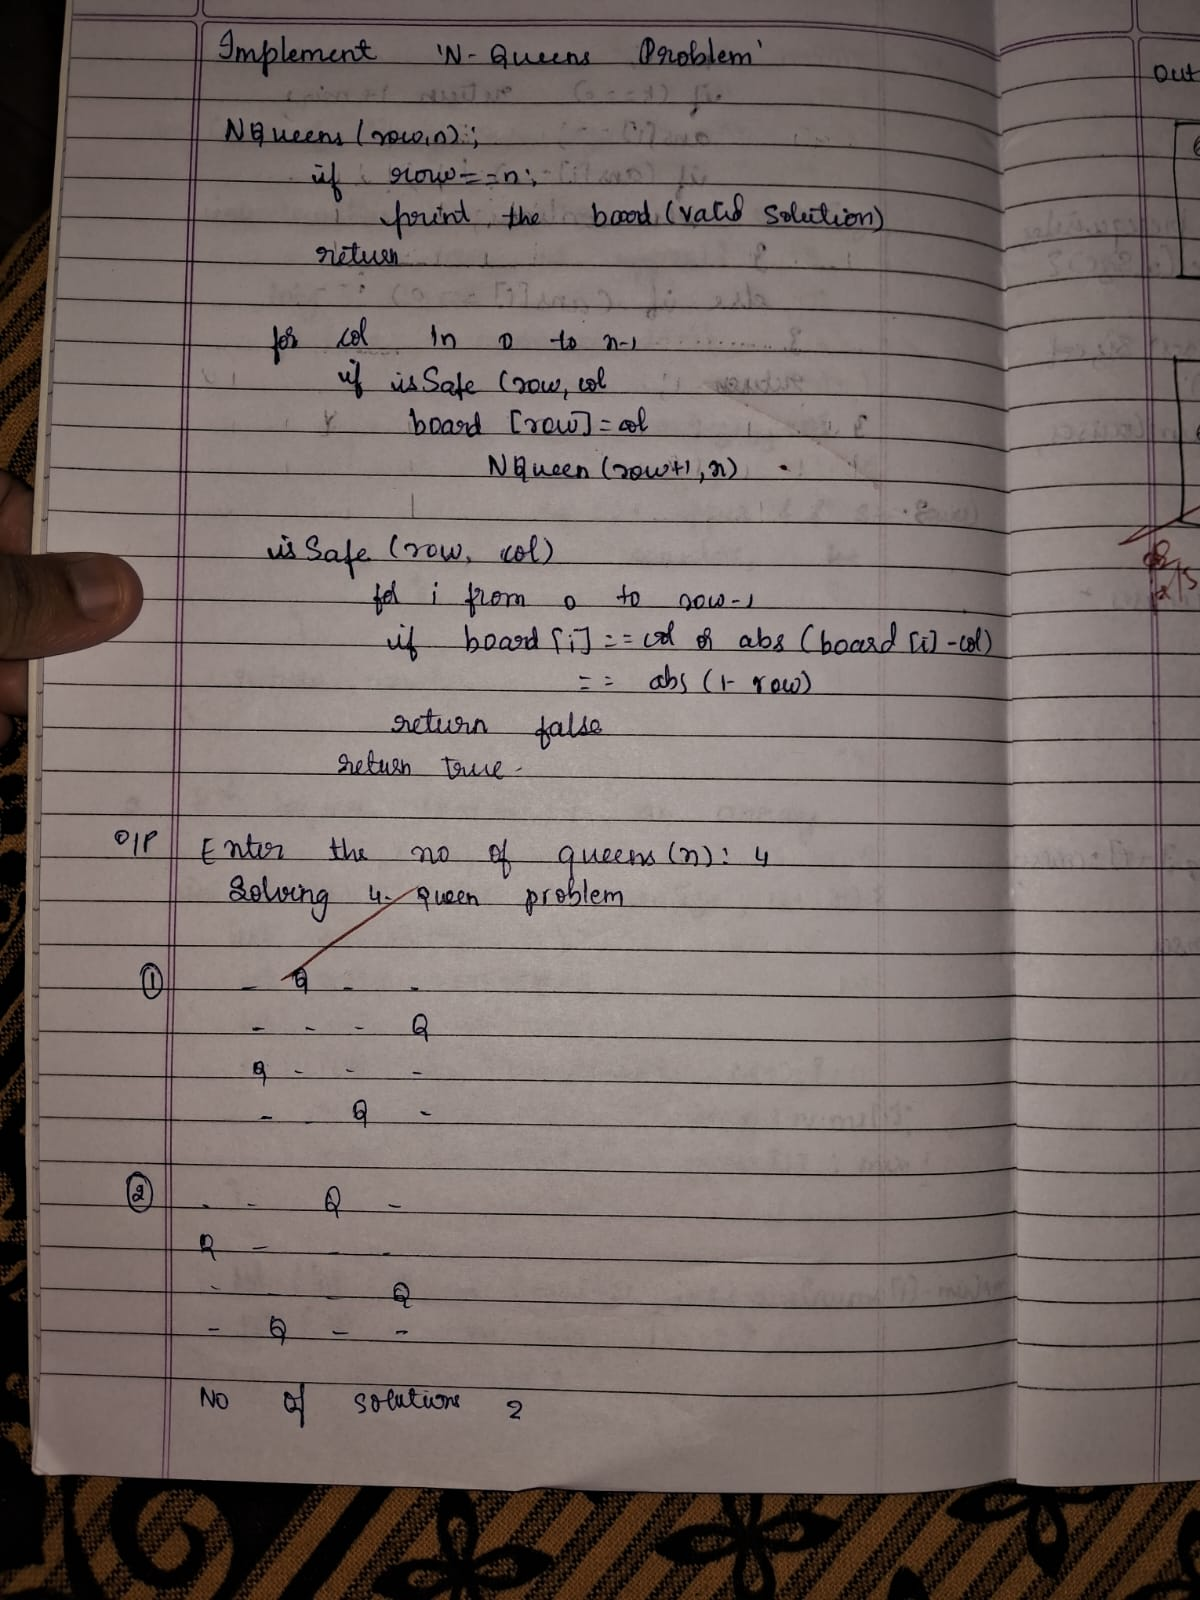 Implement 'N-Queens Problem'
NQueens (row,n);
if row==n:
print the boord (valid solution)
return
for col in 0 to n-1
if isSafe (row, col
board [row] = col
NQueen (row+1, n)
isSafe (row, col)
for i from 0 to row-1
if board [i] == col or abs (board [i] - col)
== abs (1- row)
return false
return true.
O/P Enter the no of queens (n): 4
Solving 4- Queen problem
① - Q - -
- - - Q
Q - - -
- - Q -
② - - Q -
Q - - -
- - - Q
- Q - -
No of solutions 2
out